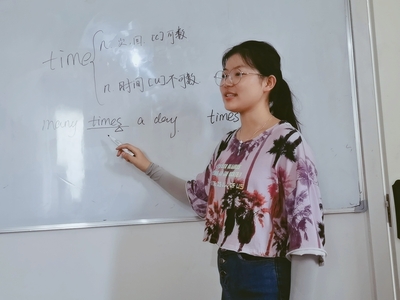 time
n [C]可数
n 时间 [U]不可数
many times a day times